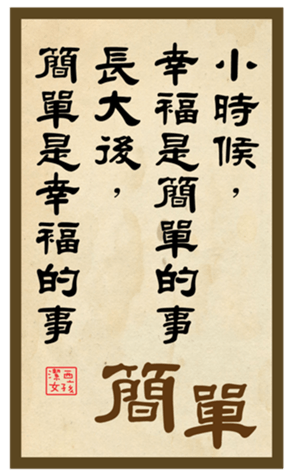 小時候，
幸福是簡單的事
長大後，
簡單是幸福的事
簡單
潔西
女孩